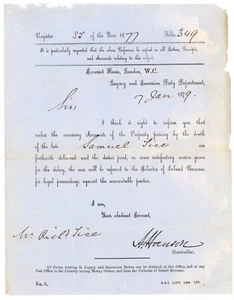 Register S2 of the Year 1877 Folio 349
It is particularly requested that the above Reference be quoted in all Letters, Receipts,
and Accounts relating to this subject.
Somerset House, London, W.C.
Legacy and Succession Duty Department,
7 Jan 1879.
Sir
I think it right to inform you that
unless the necessary Account of the Property passing by the
death of the late Samuel Tice be
forthwith delivered and the duties paid, or some satisfactory reason given for
the delay, the case will be referred to the Solicitor of Inland Revenue
for legal proceedings against the accountable parties.
I am,
Your obedient Servant,
Mr Richd Tice
A Hanson
Controller.
All Forms relating to Legacy and Succession Duties can be obtained at this Office, and at any
Post Office in the Country issuing Money Orders, and from the Collector of Inland Revenue.